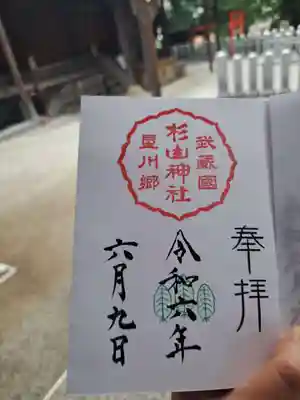 奉拝
武蔵國
杉山神社
星川郷
令和六年
六月九日